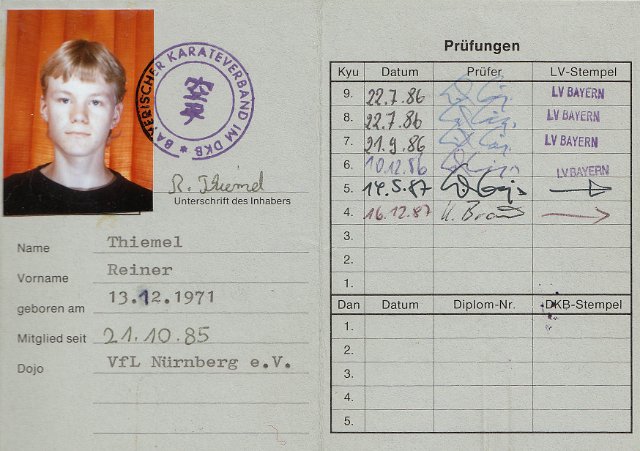 BAYERISCHER KARATEVERBAND IM DKB *
空手
R. Thiemel
Unterschrift des Inhabers
Name Thiemel
Vorname Reiner
geboren am 13.12.1971
Mitglied seit 21.10.85
Dojo VfL Nürnberg e.V.
Prüfungen
Kyu Datum Prüfer LV-Stempel
9. 22.7.86 LV BAYERN
8. 22.7.86 LV BAYERN
7. 21.9.86 LV BAYERN
6. 10.12.86 LV BAYERN
5. 14.5.87
4. 16.12.87
3.
2.
1.
Dan Datum Diplom-Nr. DKB-Stempel
1.
2.
3.
4.
5.